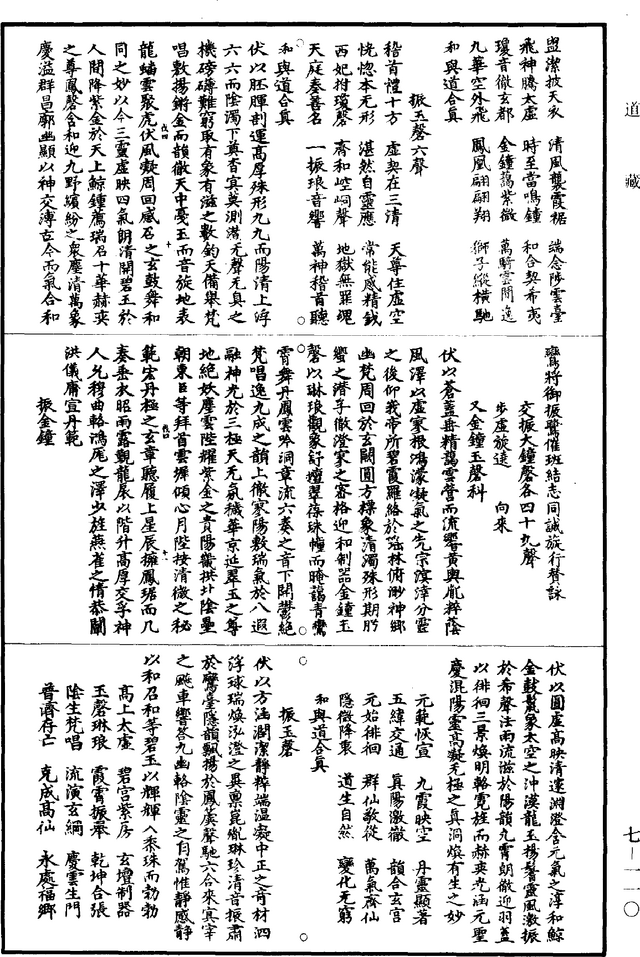 道藏
盥潔披天衣　清風襲霞裾　端念陟雲臺
飛神騰太虛　時至當鳴鐘　和合契希夷
瓊音徹玄都　金鐘藹紫微　萬騎雲間進
九華空外飛　鳳凰翩翩翔　獅子縱橫馳
和與道合真
振玉磬六聲
稽首禮十方　虛契在三清　天尊住虛空
恍惚本无形　湛然自靈應　常能感精誠
西妃拊瓊磬　齊和崆峒聲　地獄無罪魂
天庭奏善名　一振琅音響　萬神稽首聽
和與道合真
伏以胚腪剖運高厚殊形九九而陽清上浮
六六而陰濁下奠杳冥莫測湛无聲无臭之
機磅礡難窮取有象有滋之數鈞天備舉梵
唱敷揚鏘金而韻徹天中戛玉而音旋地表
龍蟠雲聚虎伏風凝周回感召之玄鼓舞和
同之妙以今三靈虛映四氣朗清開碧玉於
人間降紫金於天上鯨鍾薦瑞召十華赫奕
之尊鳳磬含和迎九野繽紛之衆塵清萬象
慶溢群昌廓幽顯以神交溥古今而氣合和
鸞將御振鷺催班結志同誠旅行聲詠
交振大鐘磬各四十九聲
步虛旋遶　向來
又金鐘玉磬科
伏以蒼蓋毋精藹雲營而流響黃輿胤粹蔭
風澤以虛寥根鴻濛凝氣之先宗溟涬分靈
之後仰羲帝所碧霞羅絡於瑤林俯渺神鄉
幽梵周回於玄闕圓方標象清濁殊形期肹
蠁之潛孚徹澄寥之審格迎和制器金鐘玉
磬以琳琅觀象紓壇翠葆珠幢而晻藹青鸞
霄舞丹鳳雲吟洞章流六奏之音下開鬱絕
梵唱逸九成之韻上徹寥陽敷瑞氣於八遐
融神光於三極天无氛穢華京近翠玉之尊
地絕妖塵雲陛耀紫金之貴陽畿拱北陰壘
朝東臣等拜首雲墀傾心月陛按清微之秘
範宏丹極之玄章聽履上星辰擁鳳琚而几
奏垂衣昭雨露觀龍扆以階升高厚交孚神
人允穆曲軫鴻厖之澤少旌燕雀之情恭闡
洪儀庸宣丹範
振金鐘
伏以圓虛高映清運淵澄含元氣之淳和鯨
金鼓鬣象太空之沖漠龍玉揚鬐靈風激振
於希聲法雨流滋於陽韻九霄朗徹迎羽蓋
以徘徊三景煥明輅霓旌而赫奕光涵元聖
慶混陽靈高凝无極之真洞煥有生之妙
元範恢宣　九霞映空　丹靈顯著
五緯交通　真陽激徹　韻合玄宮
元始徘徊　群仙敬從　萬氣齊仙
隱微降衷　道生自然　變化无窮
和與道合真
振玉磬
伏以方涵潤潔靜粹端溫凝中正之奇材泗
浮球瑞煥泓澄之異稟崑胤琳珍清音振肅
於鸞臺隱韻飄揚於鳳虡聲馳六合來真宰
之飈車響答九幽輅陰靈之自駕惟靜感靜
以和召和等碧玉以輝輝入黍珠而勃勃
高上太虛　碧宮紫房　玄壇制器
玉磬琳琅　霞霄振舉　乾坤合張
陰生梵唱　流演玄綱　慶雲生門
普濟存亡　克成高仙　永處福鄉
七一一一〇